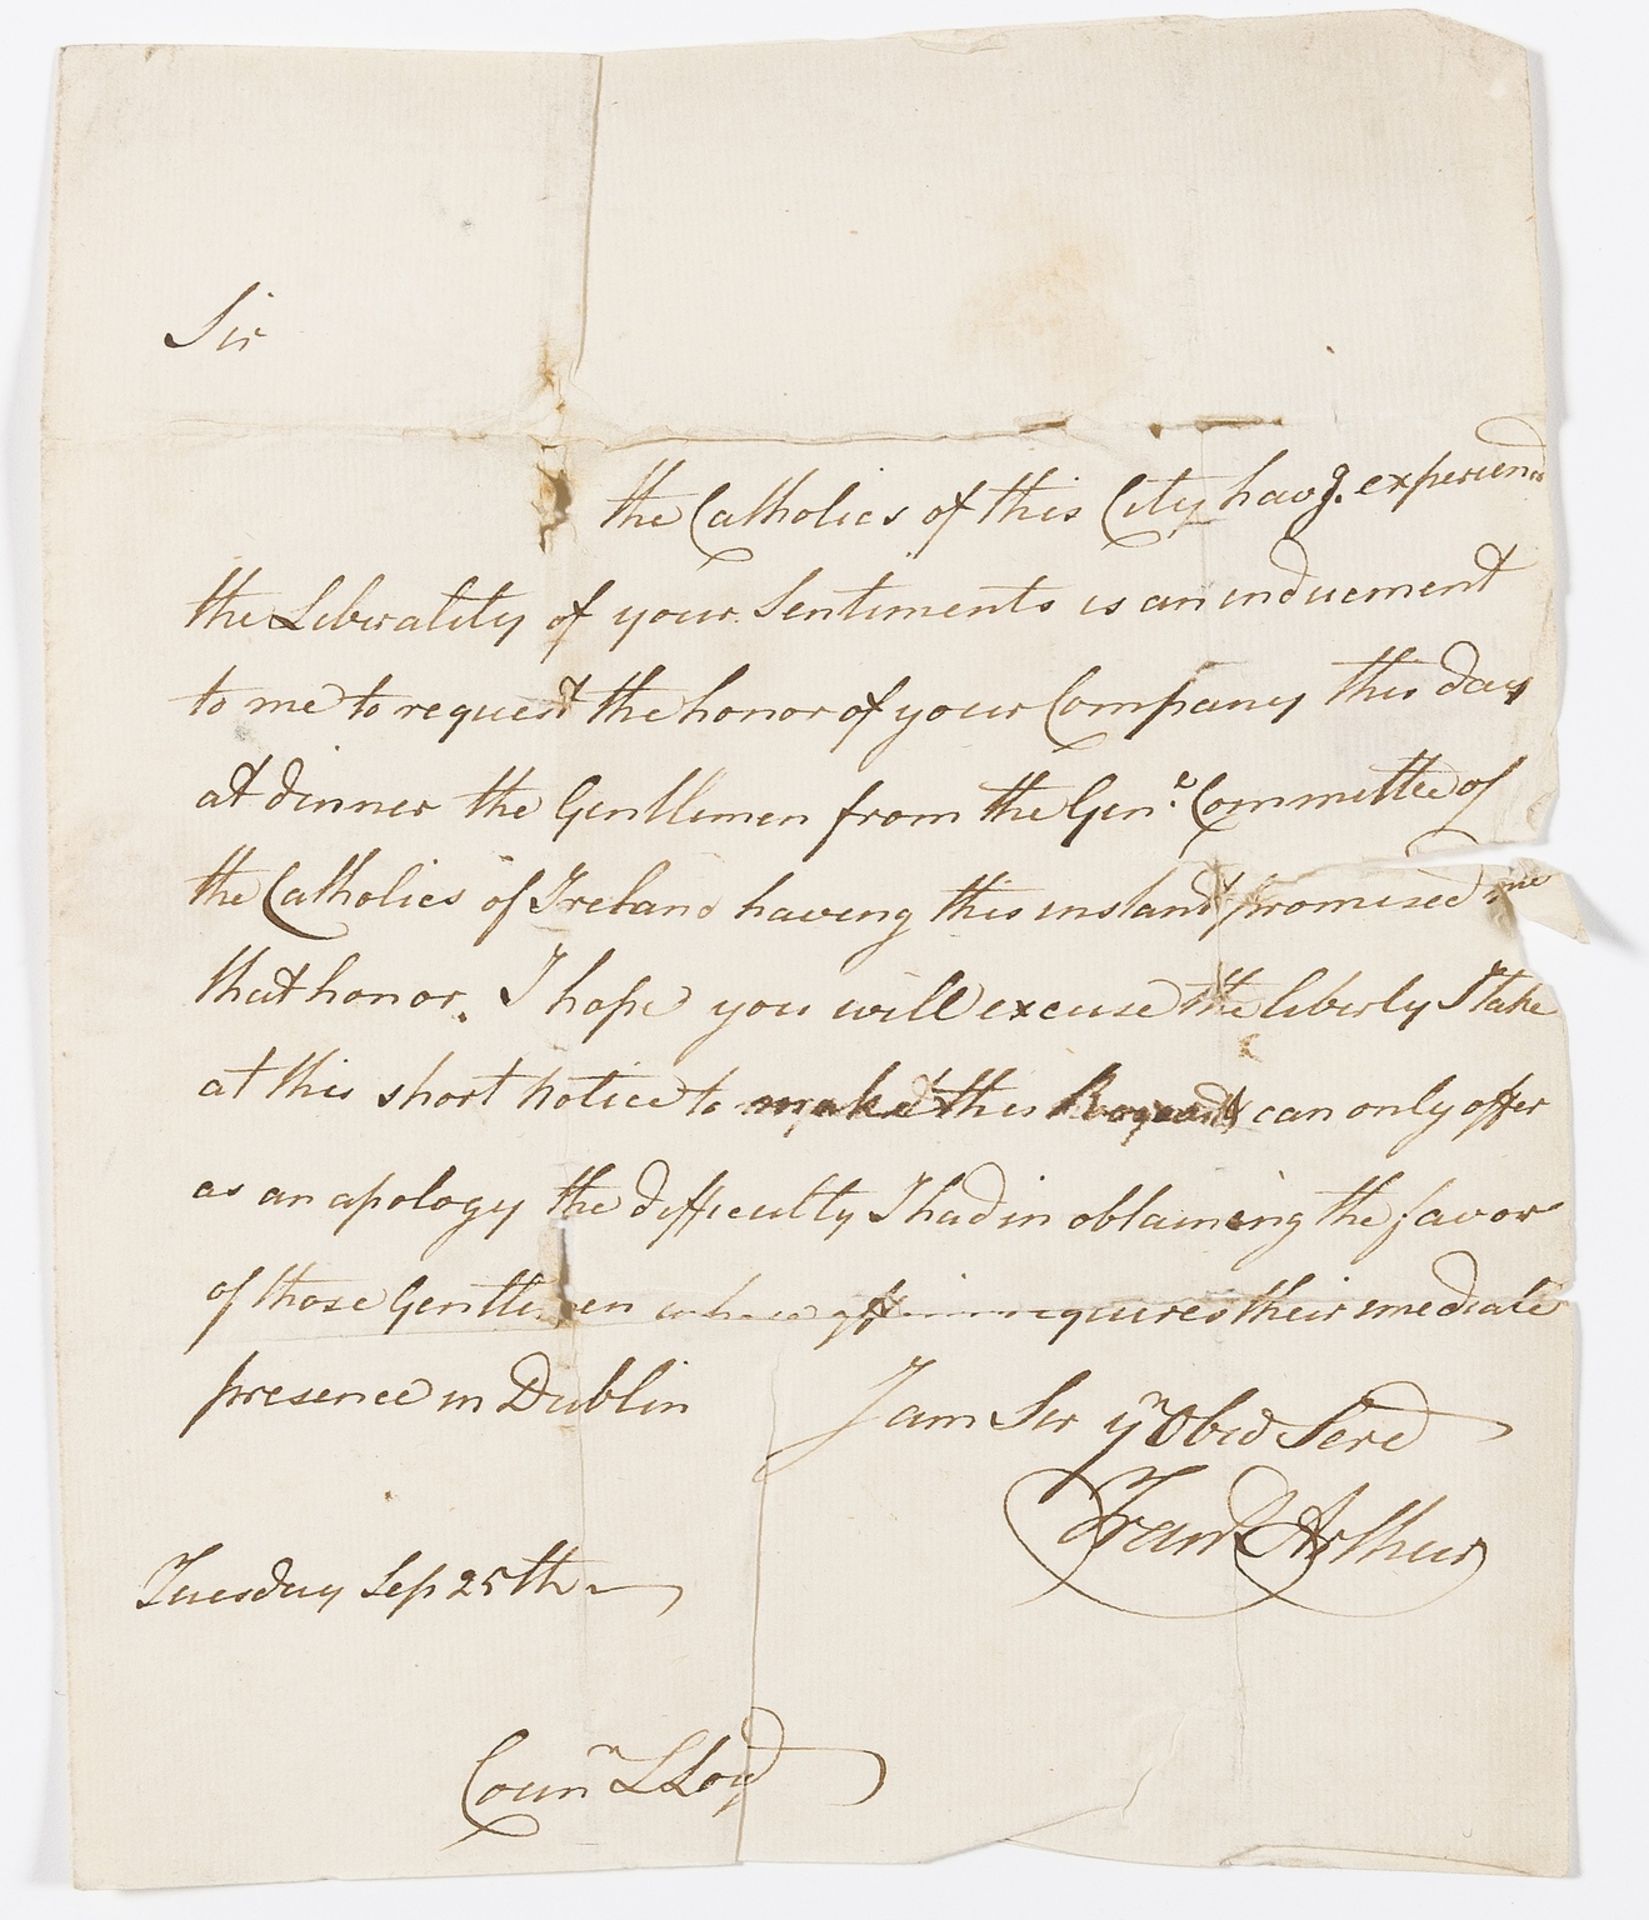 Sir
the Catholics of this City havg. experiencd
the Liberality of your Sentiments is an inducement
to me to request the honor of your Company this day
at dinner the Gentlemen from the Genl. Committee of
the Catholics of Ireland having this instant promised me
that honor. I hope you will excuse the liberty I take
at this short notice to make this can only offer
as an apology the difficulty I had in obtaining the favor
of those Gentlemen whose requires their imediate
presence in Dublin
I am Sir yr Obed Serv
Frans Arthur
Tuesday Sep 25th
Counr LLoyd